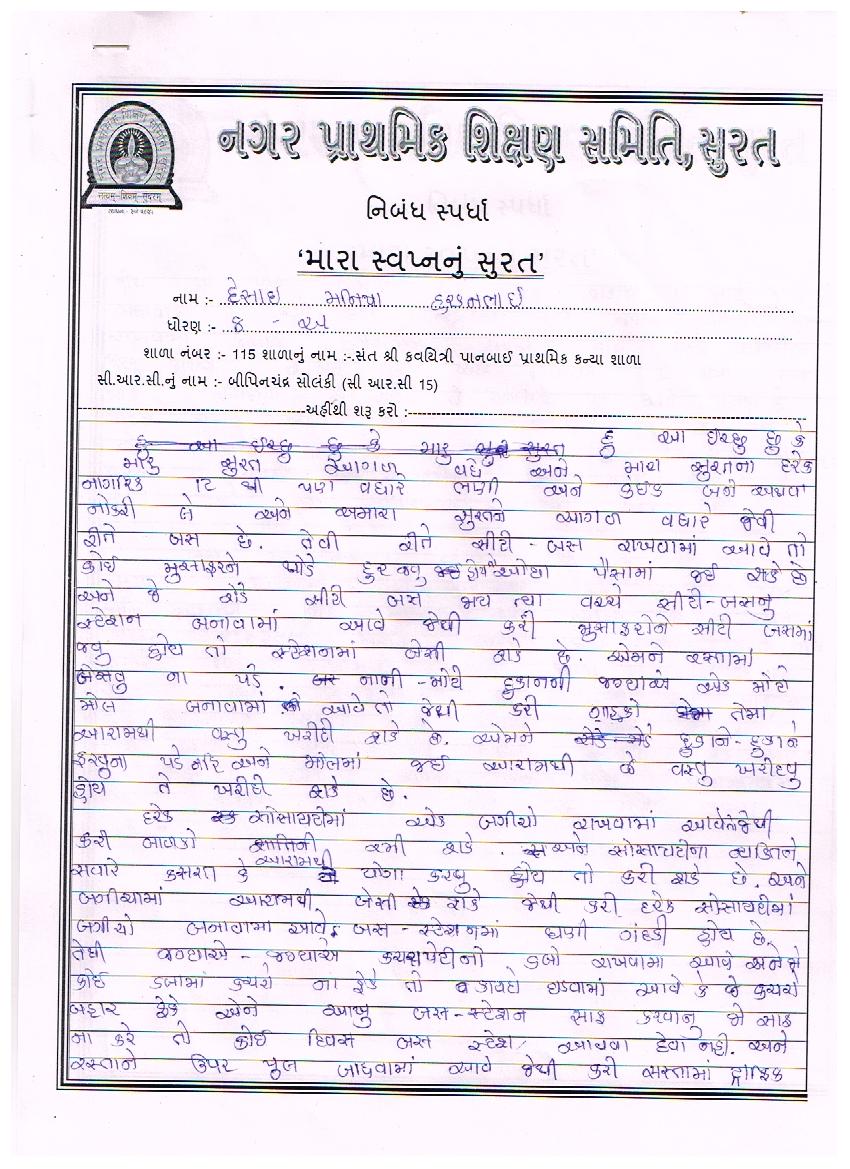 નગર પ્રાથમિક શિક્ષણ સમિતિ, સુરત
સત્યમ્-શિવમ્-સુન્દરમ્
નિબંધ સ્પર્ધા
'મારા સ્વપ્નનું સુરત'
નામ :- દેસાઇ મનિષા
ધોરણ :- ૪ - અ
શાળા નંબર :- 115 શાળાનું નામ :-.સંત શ્રી કવયિત્રી પાનબાઈ પ્રાથમિક કન્યા શાળા
સી.આર.સી.નું નામ :- બીપિનચંદ્ર સોલંકી (સી આર.સી 15)
અહીંથી શરૂ કરો :-
હું આ ઈચ્છુ છુ કે મારુ સુરત હુ આ ઈચ્છુ છુ કે
મારુ સુરત આગળ વધે અને મારા સુરતના દરેક
નાગરિક 12 થી પણ વધારે ભણી અને કંઇક બને અથવા
નોકરી લે અને અમારા સુરતને આગળ વધારે જેવી
રીતે બસ છે. તેવી રીતે સીટી - બસ રાખવામાં આવે તો
કોઈ મુસાફરને થોડે દુર જવુ હોય ઓછા પૈસામાં જઈ શકે છે
અને જે રોડે સીટી બસ જાય ત્યા વચ્ચે સીટી-બસનુ
સ્ટેશન બનાવામાં આવે જેથી કરી મુસાફરોને સીટી બસમાં
જવુ હોય તો સ્ટેશનમાં બેસી શકે છે. એમને રસ્તામાં
બેસવુ ના પડે. નાની-મોટી દુકાનની જગ્યાએ એક મોટો
મોલ બનાવામાં આવે તો જેથી કરી ગ્રાહકો તેમા
આરામથી વસ્તુ ખરીદી શકે છે. એમને દુકાને-દુકાને
ફરવુ ના પડે અને મોલમાં જઈ આરામથી જે વસ્તુ ખરીદવુ
હોય તે ખરીદી શકે છે.
દરેક સોસાયટીમાં એક બગીચો રાખવામાં આવે જેથી
કરી બાળકો શાંતિની રમી શકે. અને સોસાયટીના વ્યક્તિને
સવારે કસરત કે આરામથી યોગા કરવુ હોય તો કરી શકે છે. અને
બગીચામાં આરામથી બેસી શકે જેથી કરી દરેક સોસાયટીમાં
બગીચો બનાવામાં આવે. બસ-સ્ટેશનમાં ઘણી ગંદકી હોય છે.
તેથી જગ્યાએ-જગ્યાએ કચરાપેટીનો ડબો રાખવામા આવે અને જો
કોઈ ડબામાં કચરો ના ફેકે તો કાયદો ઘડવામાં આવે કે જે કચરો
બહાર ફેકે એને આખુ બસ-સ્ટેશન સાફ કરવાનુ જો સાફ
ના કરે તો કોઈ દિવસ બસ સ્ટેશન આવવા દેવા નહી. અને
રસ્તાને ઉપર પુલ બાધવામાં આવે જેથી કરી રસ્તામાં ટ્રાફિક